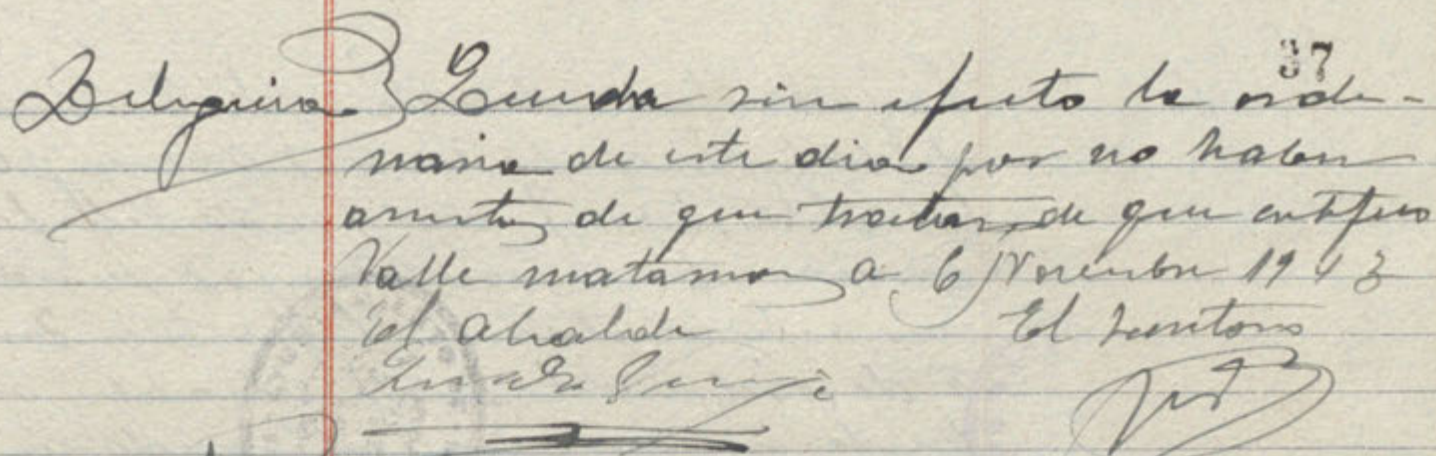 37
Diligencia } Queda sin efecto la ordi-
naria de este dia por no haber
asuntos de que tratar, de que certifico
Valle matamoros a 6 Noviembre 1943
El Alcalde El Secretario